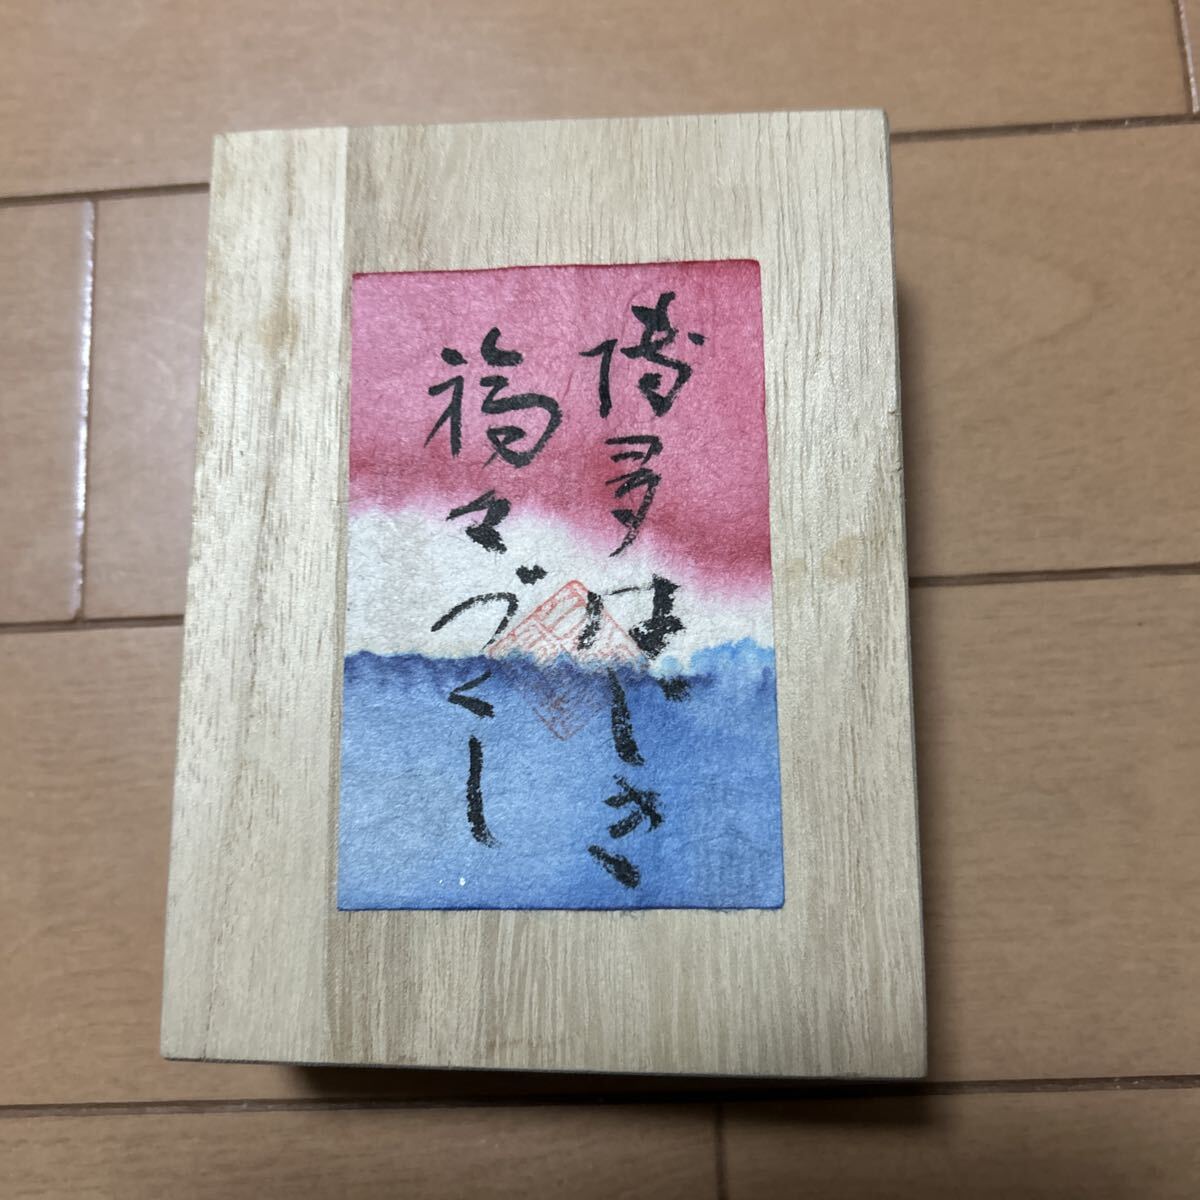 博多はじき
福々づくし